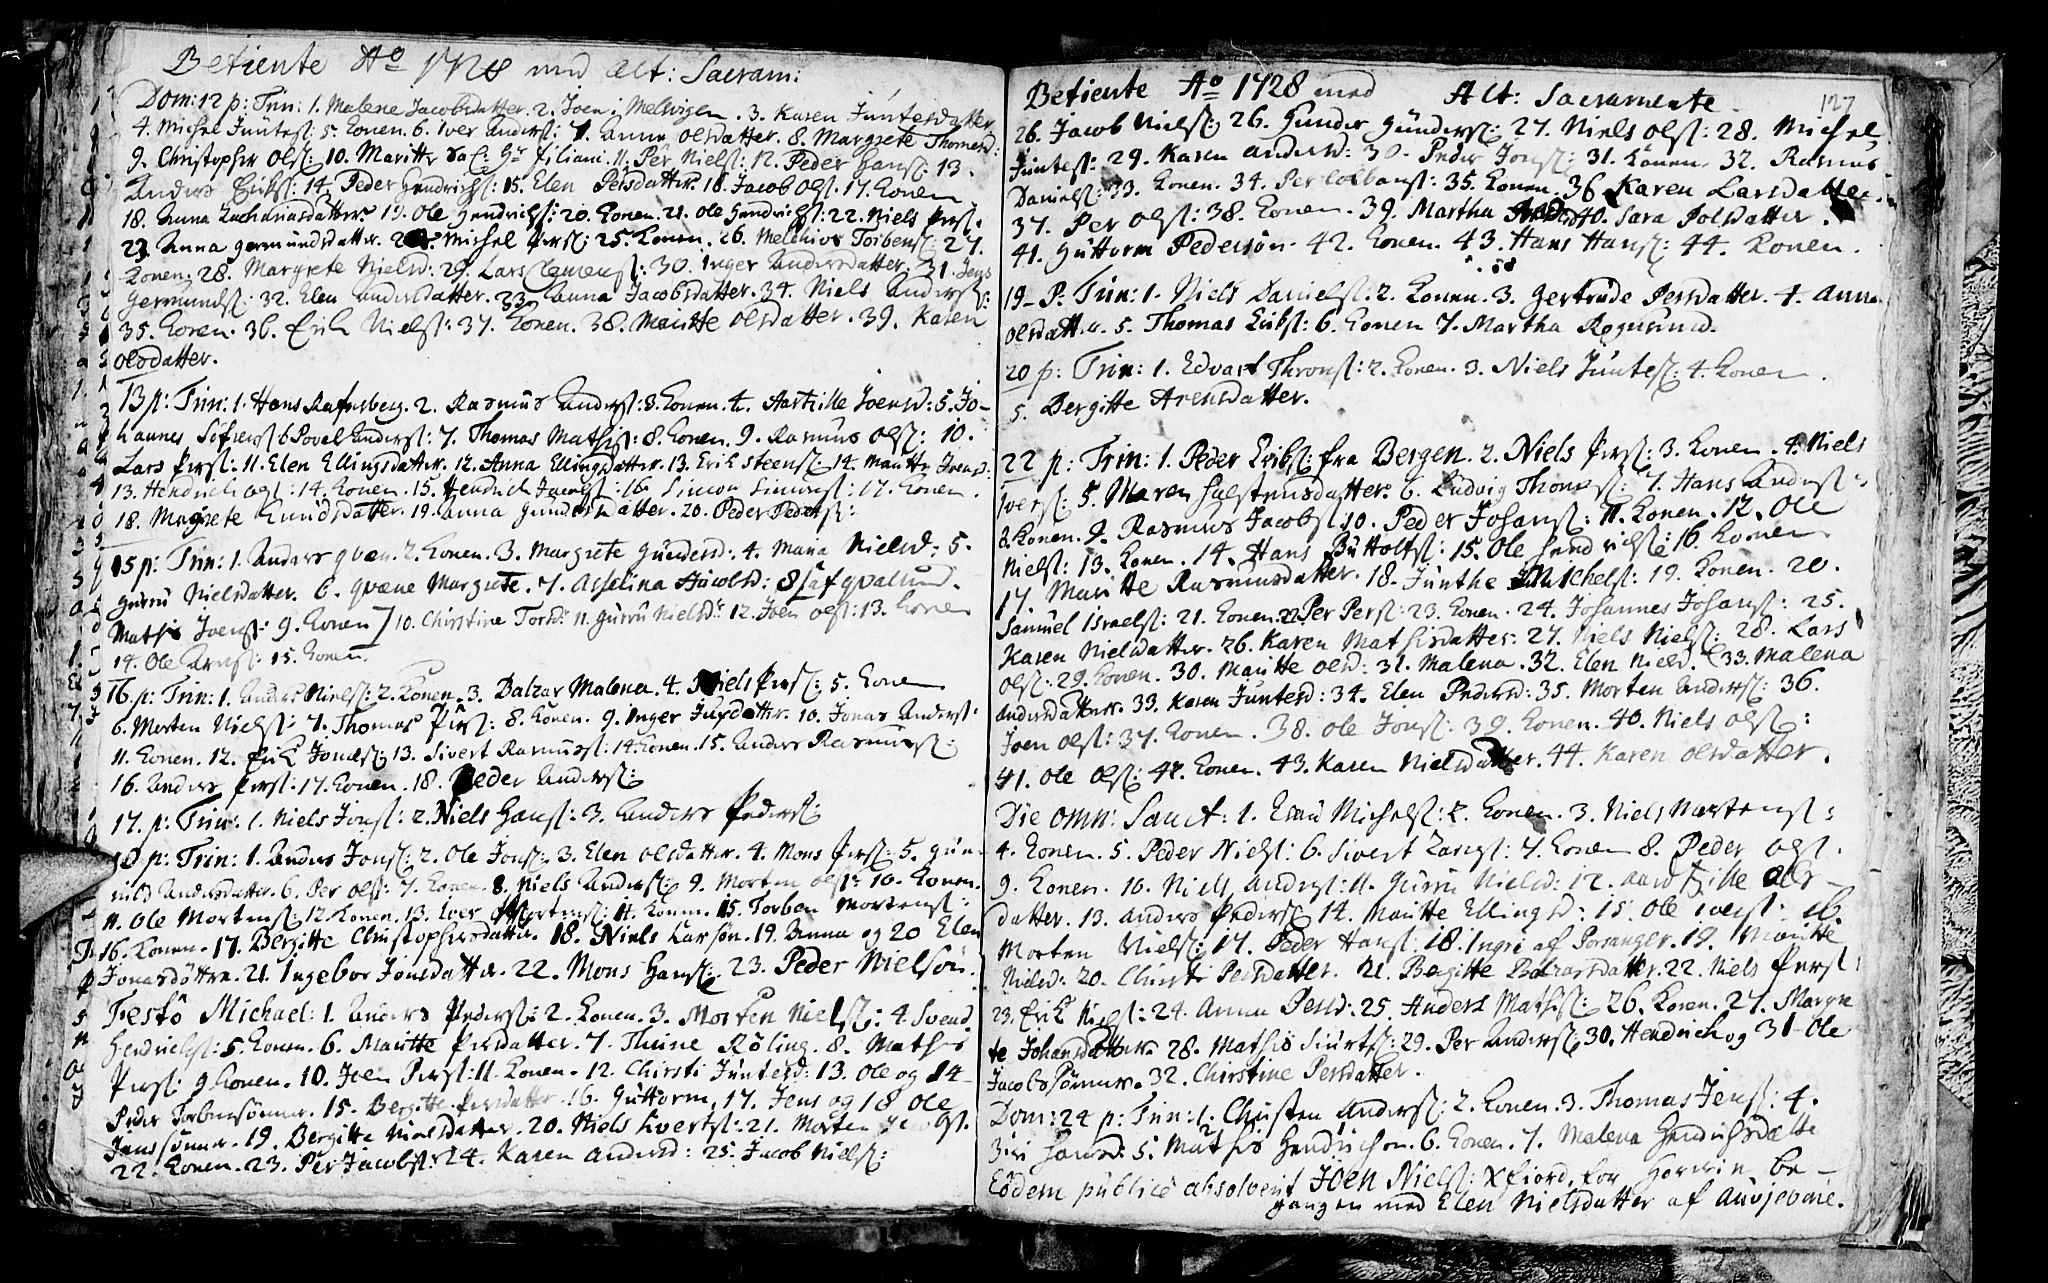 Betiente Ao 1728 med Alt: Sacram:
Dom: 12 p: Trin: 1. Malene Jacobsdatter. 2. Joen i Melkvigen. 3. Karen Juntesdatter
4. Michel Juntes: 5. Konen. 6. Iver Anders: 7. Anna Olsdatter. 8. Margrete Thomesd:
9. Christopher Ols: 10. Maritte 11. Per Niels: 12. Peder Hans: 13.
Anders Eriks: 14. Peder Hendrichs: 15. Elen Persdatter. 16. Jacob Ols: 17. Konen
18. Anna Zachariasdatter. 19. Ole Hendrichs: 20. Konen. 21. Ole Hendrichs: 22. Niels Pers:
23. Anna Germundsdatter. 24. Michel Pers: 25. Konen. 26. Melchior Torbens: 27.
Konen. 28. Margrete Nielsd: 29. Lars Clemens: 30. Inger Andersdatter. 31. Jens
Germunds: 32. Elen Andersdatter. 33. Anna Jacobsdatter. 34. Niels Anders:
35. Konen. 36. Erich Niels: 37. Konen. 38. Maritte Olsdatter. 39. Karen
Olsdatter.
13 p: Trin: 1. Hans Rafnsberg. 2. Rasmus Anders: 3. Konen. 4. Joensd: 5. Jo-
hannes Sofrens: 6 Povel Anders: 7. Thomas Mathis: 8. Konen. 9. Rasmus Ols: 10.
Lars Pers: 11. Elen Ellingsdatter. 12. Anna Ellingsdatter. 13. Erik Steens: 14. Maritte Iversd:
13. Hendrich Ols: 14. Konen. 15. Hendrich Jacobs: 16. Simon Simons: 17. Konen.
18. Margrete Knudsdatter. 19. Anna Gundersdatter. 20. Peder Peders:
15 p: Trin: 1. Anders Qvæn. 2. Konen. 3. Margrete Gundersd: 4. Maria Nielsd: 5.
Gurru Nielsdatter. 6. Qvæne Margrete. 7. Asselina Jacobsd: 8 [af Qvalsund.
Mathis Joens: 9. Konen] 10. Christine Torsd: 11. Gurru Nielsdr: 12. Joen Ols: 13. Konen
14. Ole Arns: 15. Konen.
16. p: Trin: 1. Anders Niels: 2. Konen. 3. Balzar Malena. 4. Niels Pers: 5. Konen
6. Morten Niels: 7. Thomas Pers: 8. Konen. 9. Inger Jonsdatter. 10. Jonas Anders:
11. Konen. 12. Erik Jonas: 13. Sivert Rasmus: 14. Konen. 15. Anders Rasmus:
16. Anders Pers: 17. Konen. 18. Peder Anders:
17. p: Trin: 1. Niels Jons: 2. Niels Hans: 3. Anders Peders:
18 p: Trin: 1. Anders Jons: 2. Ole Jons: 3. Elen Olsdatter. 4. Mons Pers: 5. Gun-
nild Andersdatter. 6. Per Ols: 7. Konen. 8. Niels Anders: 9. Morten Ols: 10. Konen.
11. Ole Mortens: 12. Konen. 13. Iver Mortens: 14. Konen. 15. Torben Mortens:
16. Konen. 17. Bergitte Christophersdatter. 18. Niels Larsøn. 19. Anna og 20 Elen
Jonasdøttre. 21. Ingebor Jonsdatter. 22. Mons Hans: 23. Peder Nielsøn.
Festo Michael: 1. Anders Peders: 2. Konen. 3. Morten Niels: 4. Svend
Hendrichs: 5. Konen. 6. Maritte Persdatter. 7. Thrine Røling. 8. Mathis
Pers: 9 Konen. 10. Joen Pers: 11. Konen. 12. Chirsti Juntesd: 13. Ole og 14
Peder Torbensønner. 15. Bergitte Persdatter. 16. Guttorm, 17. Jens og 18 Ole
Jenssønner. 19. Bergitte Nielsdatter. 20. Niels Everts: 21. Morten Jacobs.
22. Konen. 23. Per Jacobs: 24. Karen Andersd: 25. Jacob Niels:
Betiente Ao 1728 med Alt: Sacramente 127
26. Jacob Niels: 26. Gunder Gunders: 27. Niels Ols: 28. Michel
Juntes: 29. Karen Andersd: 30. Peder Jons: 31. Konen. 32. Rasmus
Daniels: 33. Konen. 34. Per Colbans: 35. Konen. 36 Karen Larsdatter.
37. Per Ols: 38. Konen. 39. Martha 40. Sara Polsdatter.
41. Guttorm Pedersøn. 42. Konen. 43. Hans Hans: 44. Konen.
19- P: Trin: 1. Niels Daniels: 2. Konen. 3. Gertrude Persdatter. 4. Anna
Olsdatter. 5. Thomas Eribs: 6. Konen 7. Martha Rognsund.
20 p: Trin: 1. Edvart Throns: 2. Konen. 3. Niels Juntes: 4. Konen.
5. Bergitte Arensdatter.
22 p: Trin: 1. Peder Eribs: fra Bergen. 2. Niels Pers: 3. Konen. 4. Niels
Ivers: 5. Maren Halstensdatter. 6. Ludvig Thomes: 7. Hans Anders:
8. Konen. 9. Rasmus Jacobs: 10. Peder Johans: 11. Konen. 12. Ole
Niels: 13. Konen. 14. Hans Buttolfs: 15. Ole Hendrichs: 16. Konen
17. Maritte Rasmusdatter. 18. Junthe Michels: 19. Konen. 20.
Samuel Israels: 21. Konen. 22 Per Pers: 23. Konen. 24. Johannes Johans: 25.
Karen Nielsdatter. 26. Karen Mathisdatter. 27. Niels Niels: 28. Lars
Ols: 29. Konen. 30. Maritte Olsd: 31. Malena. 32. Elen Nielsd. 33. Malena
Andersdatter. 33. Karen Juntesd: 34. Elen Pedersd: 35. Morten Anders: 36.
Joen Ols: 37. Konen. 38. Ole Jons: 39. Konen. 40. Niels Ols:
41. Ole Ols: 42. Konen. 43. Karen Nielsdatter. 44. Karen Olsdatter.
Die omn: Sanct: 1. Esau Michels: 2. Konen. 3. Niels Mortens:
4. Konen. 5. Peder Niels: 6. Sivert Lars: 7. Konen 8. Peder Ols.
9. Konen. 10. Niels Anders: 11. Gurru Nielsd: 12. Ols-
datter. 13. Anders Peders: 14. Maritte Ellingsd: 15. Ole Ivers: 16.
Morten Niels: 17. Peder Hans: 18. Ingri af Porsanger. 19. Maritte
Nielsd: 20. Chirsti Persdatter. 21. Bergitte Balzarsdatter. 22. Niels Pers:
23. Erik Niels: 24. Anna Persd: 25. Anders Mathis: 26. Konen. 27. Margre
te Johansdatter. 28. Mathis Siurts: 29. Per Anders: 30. Hendrich og 31- Ole
Jacobssønner. 32. Christine Persdatter.
Dom: 24 p: Trin: 1. Christen Anders: 2. Konen. 3. Thomas Jens: 4.
Siri Hansd: 5. Mathis Hendrichsen. 6. Konen. 7. Malena Hendrichsdatte
Eodem publice absolvent Joen Niels: Xfiord, for Horerie be-
gangen med Elen Nielsdatter af